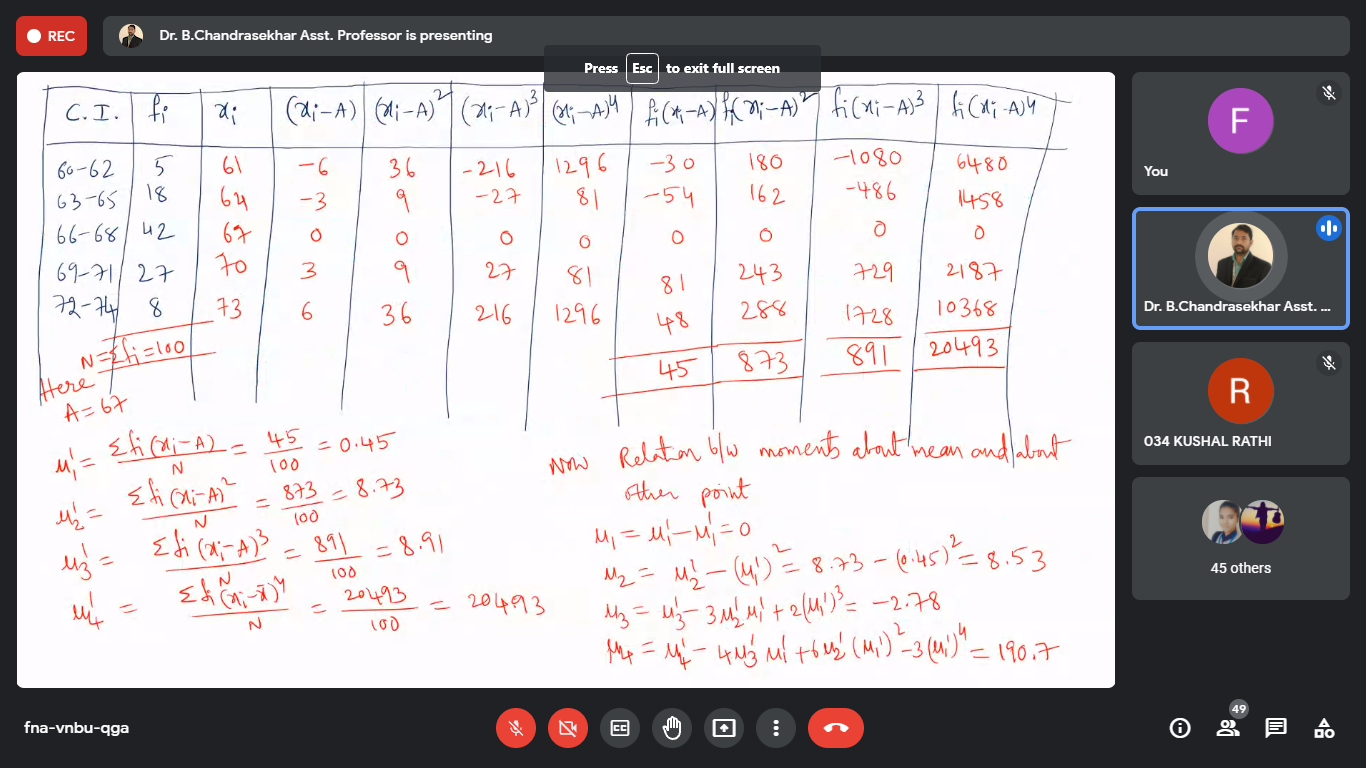 REC
Dr. B.Chandrasekhar Asst. Professor is presenting
Press Esc to exit full screen
C.I. fi xi (xi-A) (xi-A)² (xi-A)³ (xi-A)⁴ fi(xi-A) fi(xi-A)² fi(xi-A)³ fi(xi-A)⁴
60-62 5 61 -6 36 -216 1296 -30 180 -1080 6480
63-65 18 64 -3 9 -27 81 -54 162 -486 1458
66-68 42 67 0 0 0 0 0 0 0 0
69-71 27 70 3 9 27 81 81 243 729 2187
72-74 8 73 6 36 216 1296 48 288 1728 10368
N=Σfi=100 45 873 891 20493
Here
A=67
μ₁' = Σfi(xi-A)/N = 45/100 = 0.45
μ₂' = Σfi(xi-A)²/N = 873/100 = 8.73
μ₃' = Σfi(xi-A)³/N = 891/100 = 8.91
μ₄' = Σfi(xi-x̄)⁴/N = 20493/100 = 204.93
Now Relation b/w moments about mean and about
other point
μ₁ = μ₁' - μ₁' = 0
μ₂ = μ₂' - (μ₁')² = 8.73 - (0.45)² = 8.53
μ₃ = μ₃' - 3μ₂'μ₁' + 2(μ₁')³ = -2.78
μ₄ = μ₄' - 4μ₃'μ₁' + 6μ₂'(μ₁')² - 3(μ₁')⁴ = 190.7
F
You
Dr. B.Chandrasekhar Asst. ...
R
034 KUSHAL RATHI
45 others
fna-vnbu-qga
49